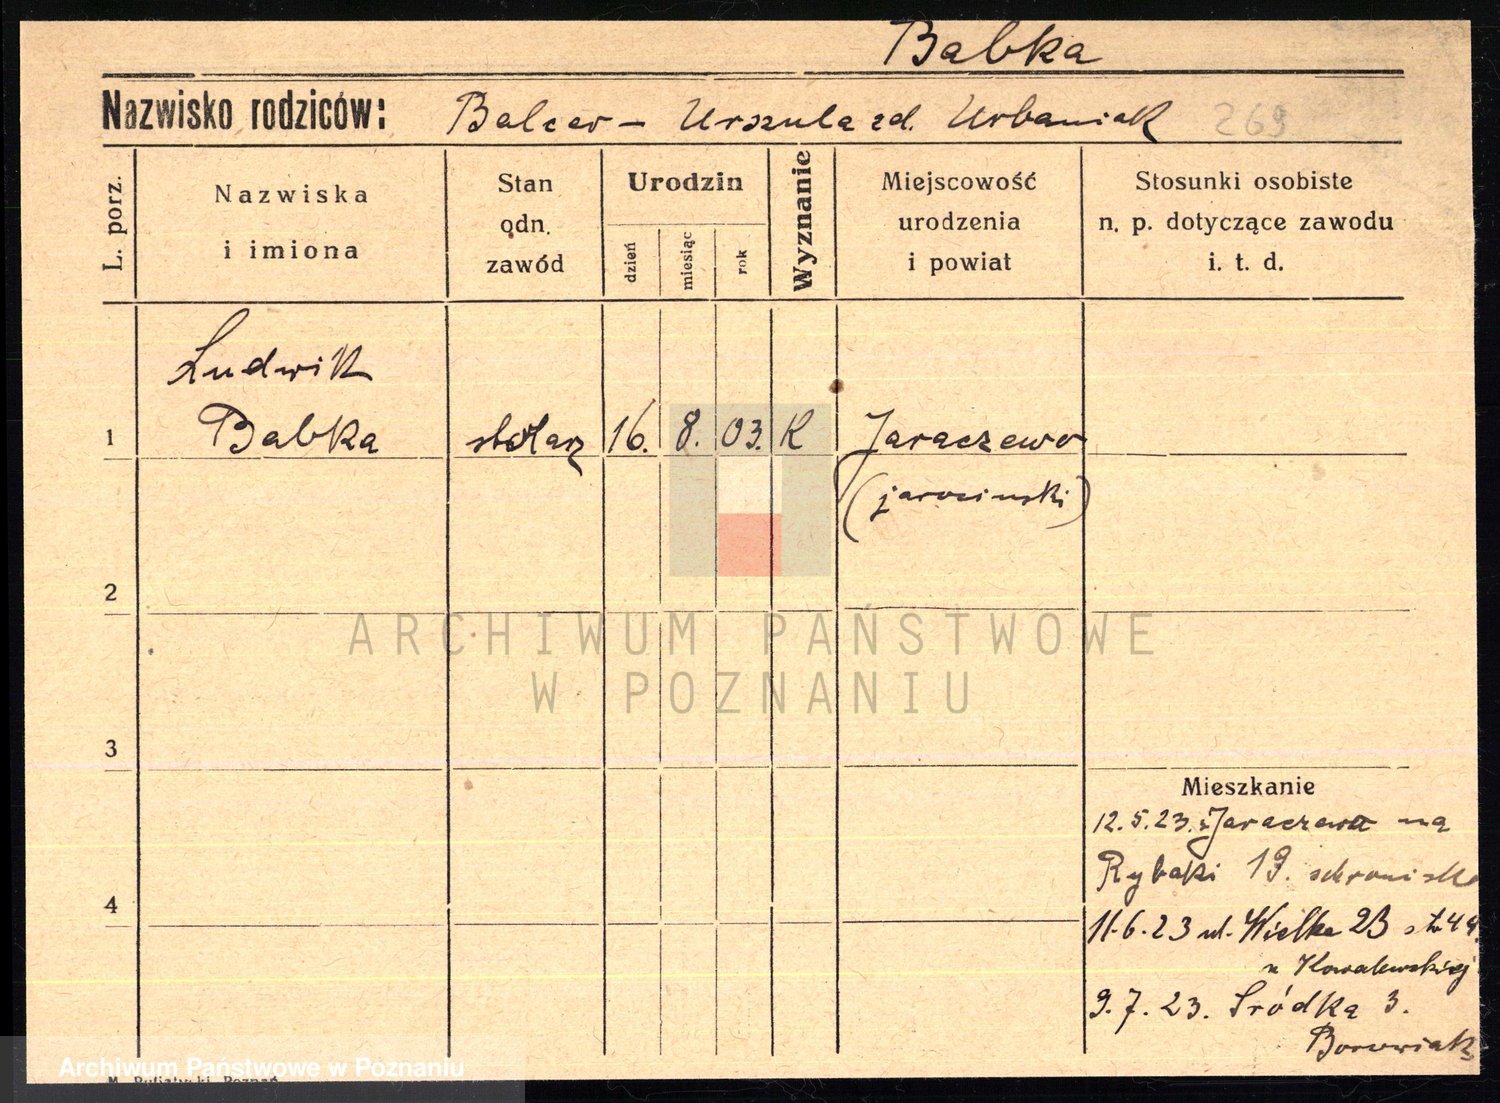 Babka
Nazwisko rodziców: Balcer - Urszula zd. Urbaniak 269
L. porz.
Nazwiska
i imiona
Stan
odn.
zawód
Urodzin
dzień
miesiąc
rok
Wyznanie
Miejscowość
urodzenia
i powiat
Stosunki osobiste
n. p. dotyczące zawodu
i. t. d.
Ludwik
1 Babka stolarz 16. 8. 03. K Jaraczewo
(jarociński)
2
ARCHIWUM PAŃSTWOWE
W POZNANIU
3
Mieszkanie
12.5.23. z Jaraczewa na
Rybaki 19. schronisko
4
11.6.23 ul. Wielka 23 44
u Kowalewskiej
9.7.23. Śródka 3.
Borowiak
Archiwum Państwowe w Poznaniu
Poznań